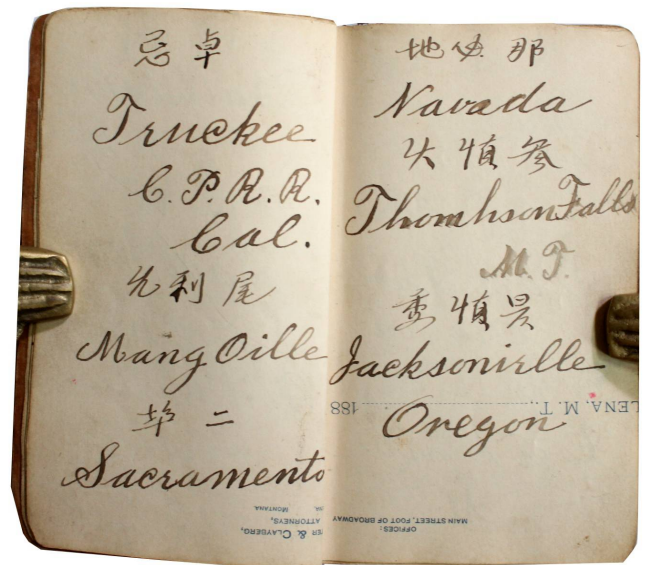 忌 卓
Truckee
C. P. R. R.
Cal.
利 尾
Mang Oille
埠 二
Sacramento
ER & CLAYBERG,
ATTORNEYS,
MONTANA
地 那
Navada
慎
Thomhson Falls
M. T.
慎
Jacksonirlle
LENA, M. T. 188
Oregon
OFFICES:
MAIN STREET, FOOT OF BROADWAY